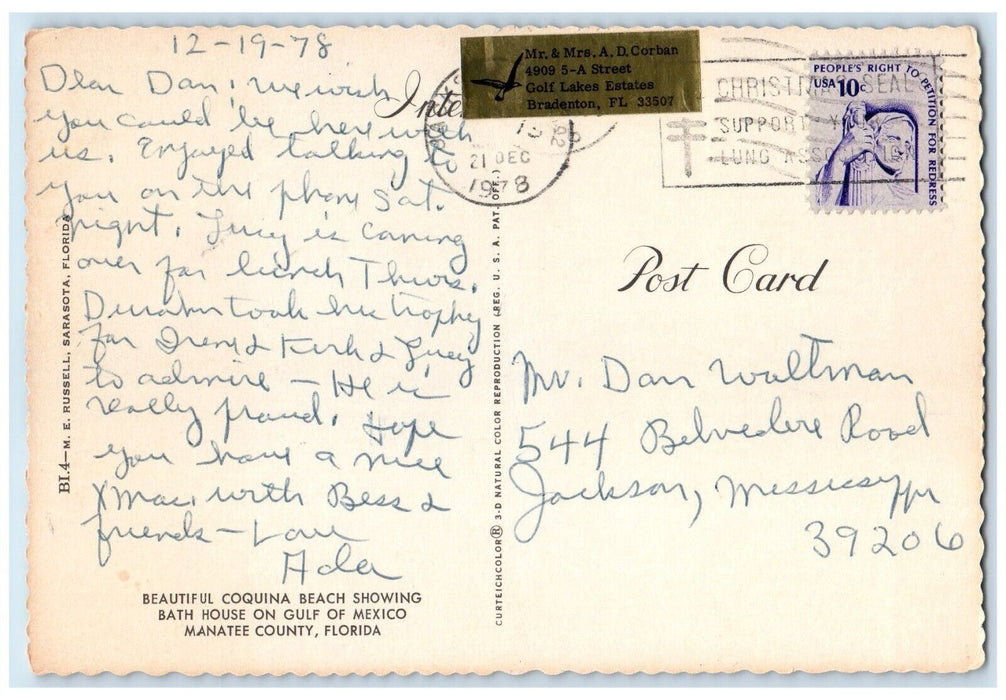 12-19-78
Dear Dan: We wish
you could be here with
us. Enjoyed talking to
you on the phone Sat.
night. Lucy is coming
over for lunch Thurs.
took his trophy
for Irene & Kirk & Lucy
to admire - He is
really proud. Hope
you have a nice
Xmas with Bess &
friends - Love
Ada
BEAUTIFUL COQUINA BEACH SHOWING
BATH HOUSE ON GULF OF MEXICO
MANATEE COUNTY, FLORIDA
BI.4—M. E. RUSSELL, SARASOTA, FLORIDA
CURTEICHCOLOR® 3-D NATURAL COLOR REPRODUCTION (REG. U. S. A. PAT. OFF.)
Mr. & Mrs. A. D. Corban
4909 5-A Street
Golf Lakes Estates
Bradenton, FL 33507
21 DEC
1978
CHRISTMAS SEAL
SUPPORT
LUNG
PEOPLE'S RIGHT TO PETITION FOR REDRESS
USA 10c
Post Card
Mr. Dan Waltman
544 Belvedere Road
Jackson, Mississippi
39206